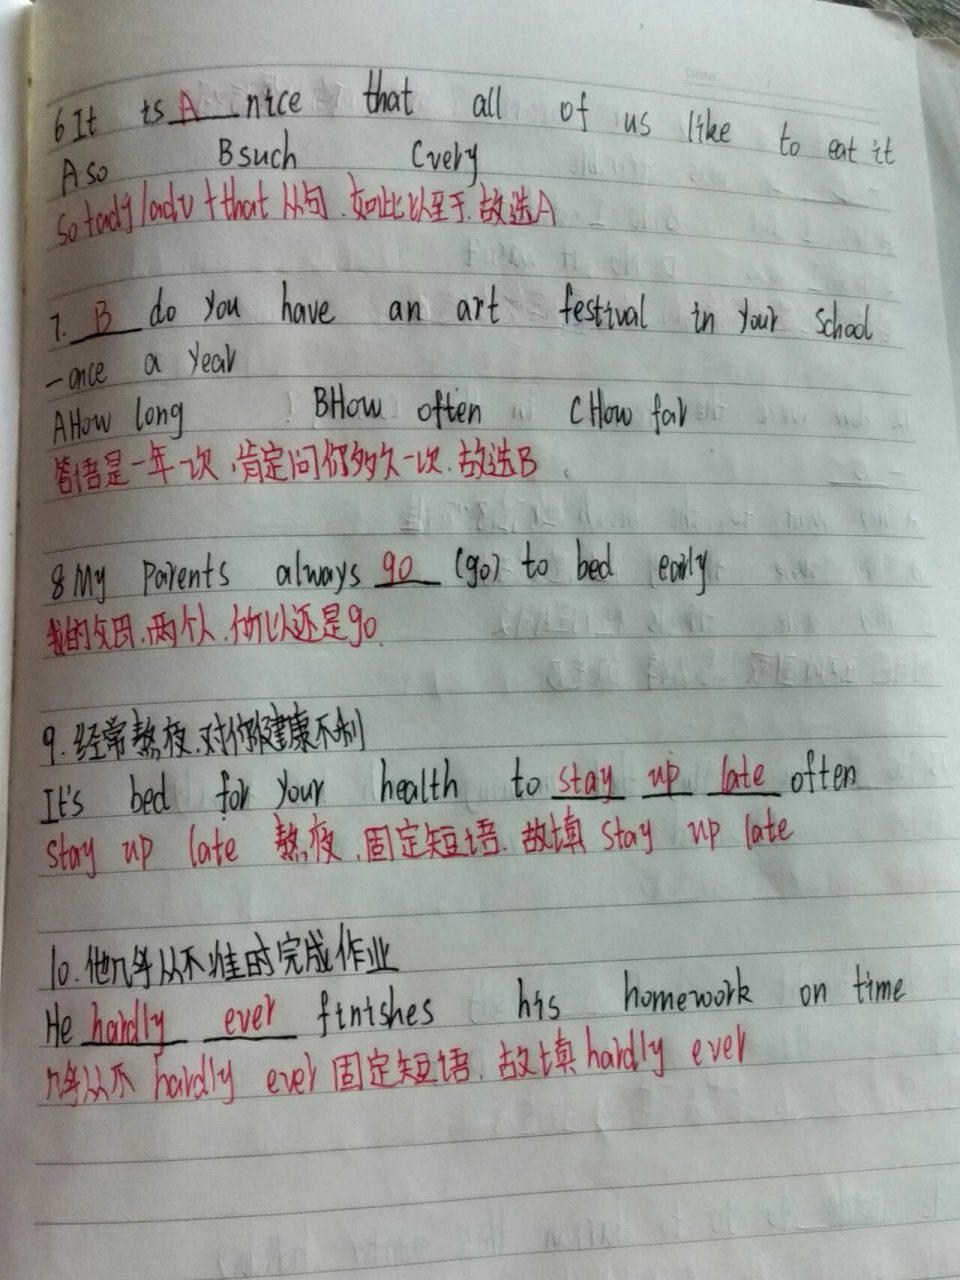 6 It is A nice that all of us like to eat it
A so B such C very
so + adj / adv + that 从句.如此以至于.故选A
7. B do you have an art festival in your school
- once a year
A How long B How often C How far
答语是一年一次,肯定问你多久一次.故选B
8 My parents always go (go) to bed early
我的父母.两个人.所以还是go.
9.经常熬夜.对你健康不利
It's bed for your health to stay up late often
stay up late 熬夜.固定短语.故填 stay up late
10.他几乎从不准时完成作业
He hardly ever finishes his homework on time
几乎从不 hardly ever 固定短语.故填 hardly ever